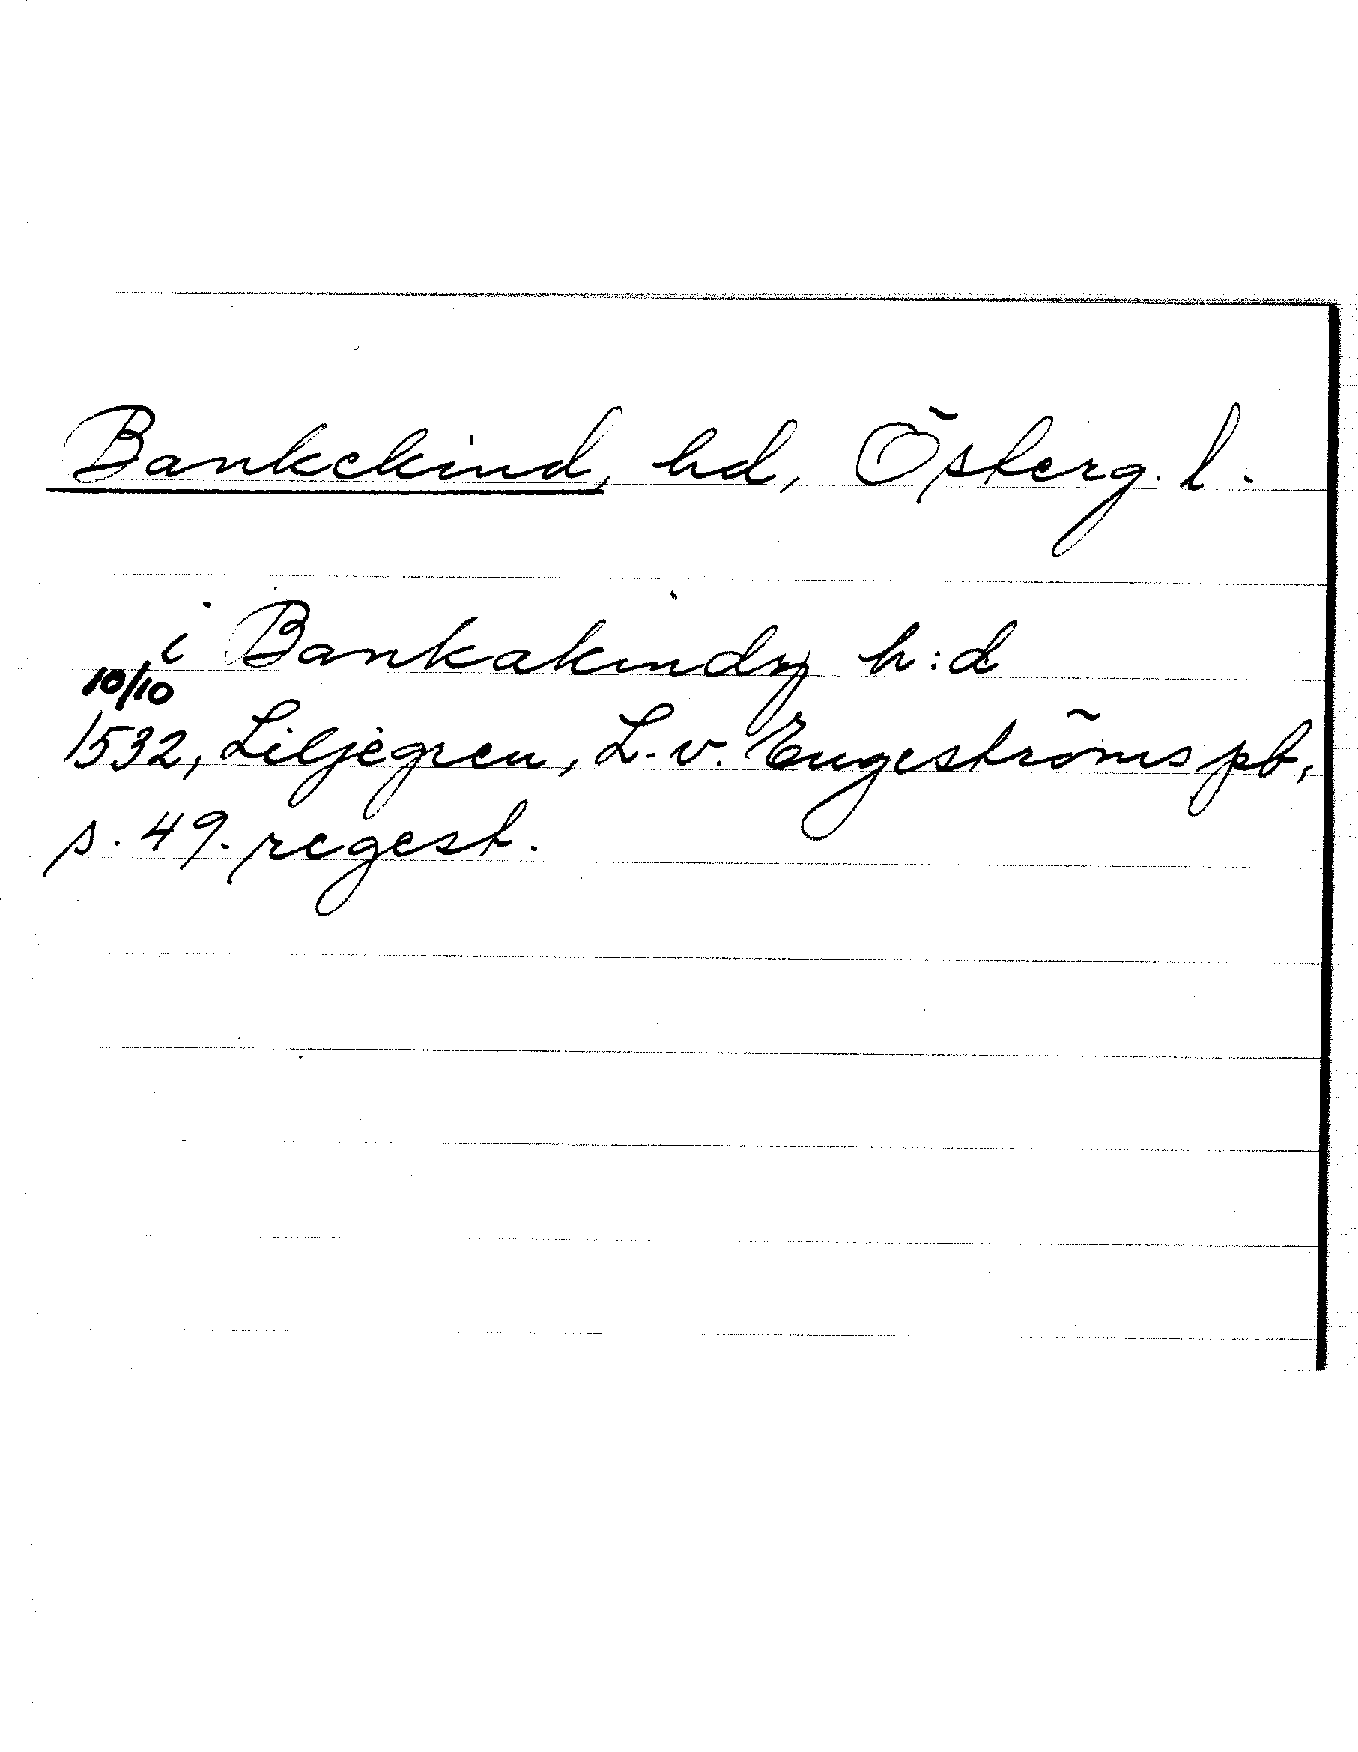 Bankekind, hd, Österg. l.
i Bankakindz h:d
10/10
1532, Liljegren, L. v. Engeströms pb,
s. 49. regest.